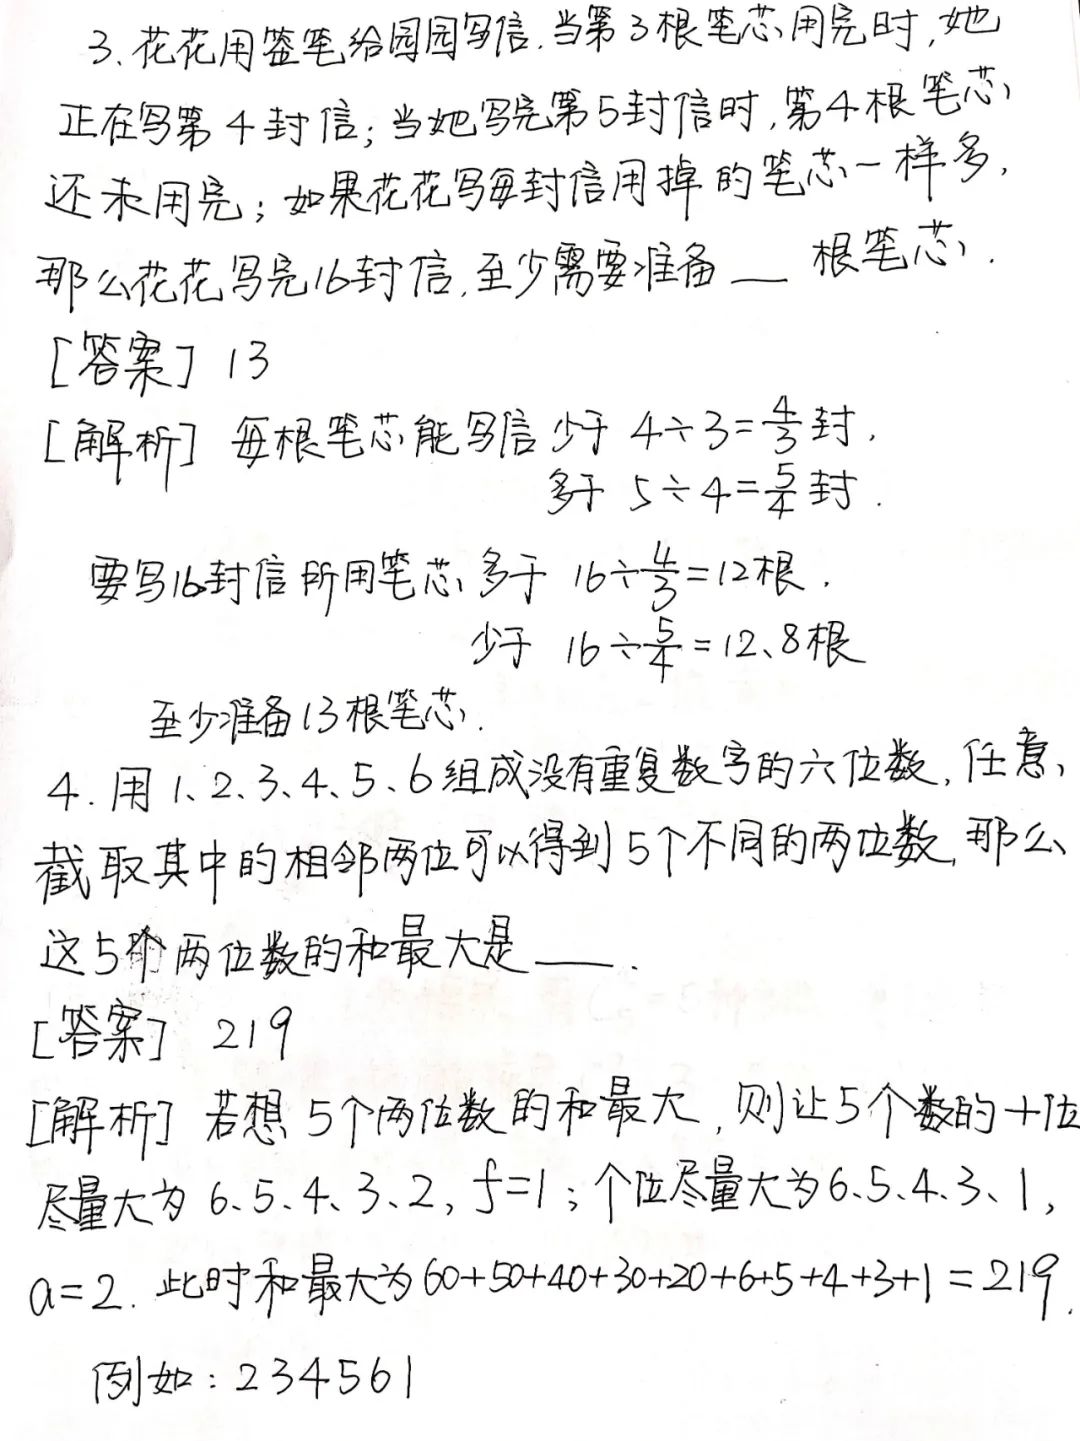 3、花花用签笔给园园写信.当第3根笔芯用完时,她
正在写第4封信;当她写完第5封信时,第4根笔芯
还未用完;如果花花写每封信用掉的笔芯一样多,
那么花花写完16封信,至少需要准备__根笔芯.
[答案] 13
[解析] 每根笔芯能写信少于 4÷3=4/3封,
多于 5÷4=5/4封.
要写16封信所用笔芯多于 16÷4/3=12根.
少于 16÷5/4=12、8根
至少准备13根笔芯.
4.用1、2、3、4、5、6组成没有重复数字的六位数,任意
截取其中的相邻两位可以得到5个不同的两位数,那么
这5个两位数的和最大是__.
[答案] 219
[解析] 若想5个两位数的和最大,则让5个数的十位
尽量大为6、5、4、3、2,f=1;个位尽量大为6、5、4、3、1,
a=2.此时和最大为60+50+40+30+20+6+5+4+3+1=219.
例如:234561